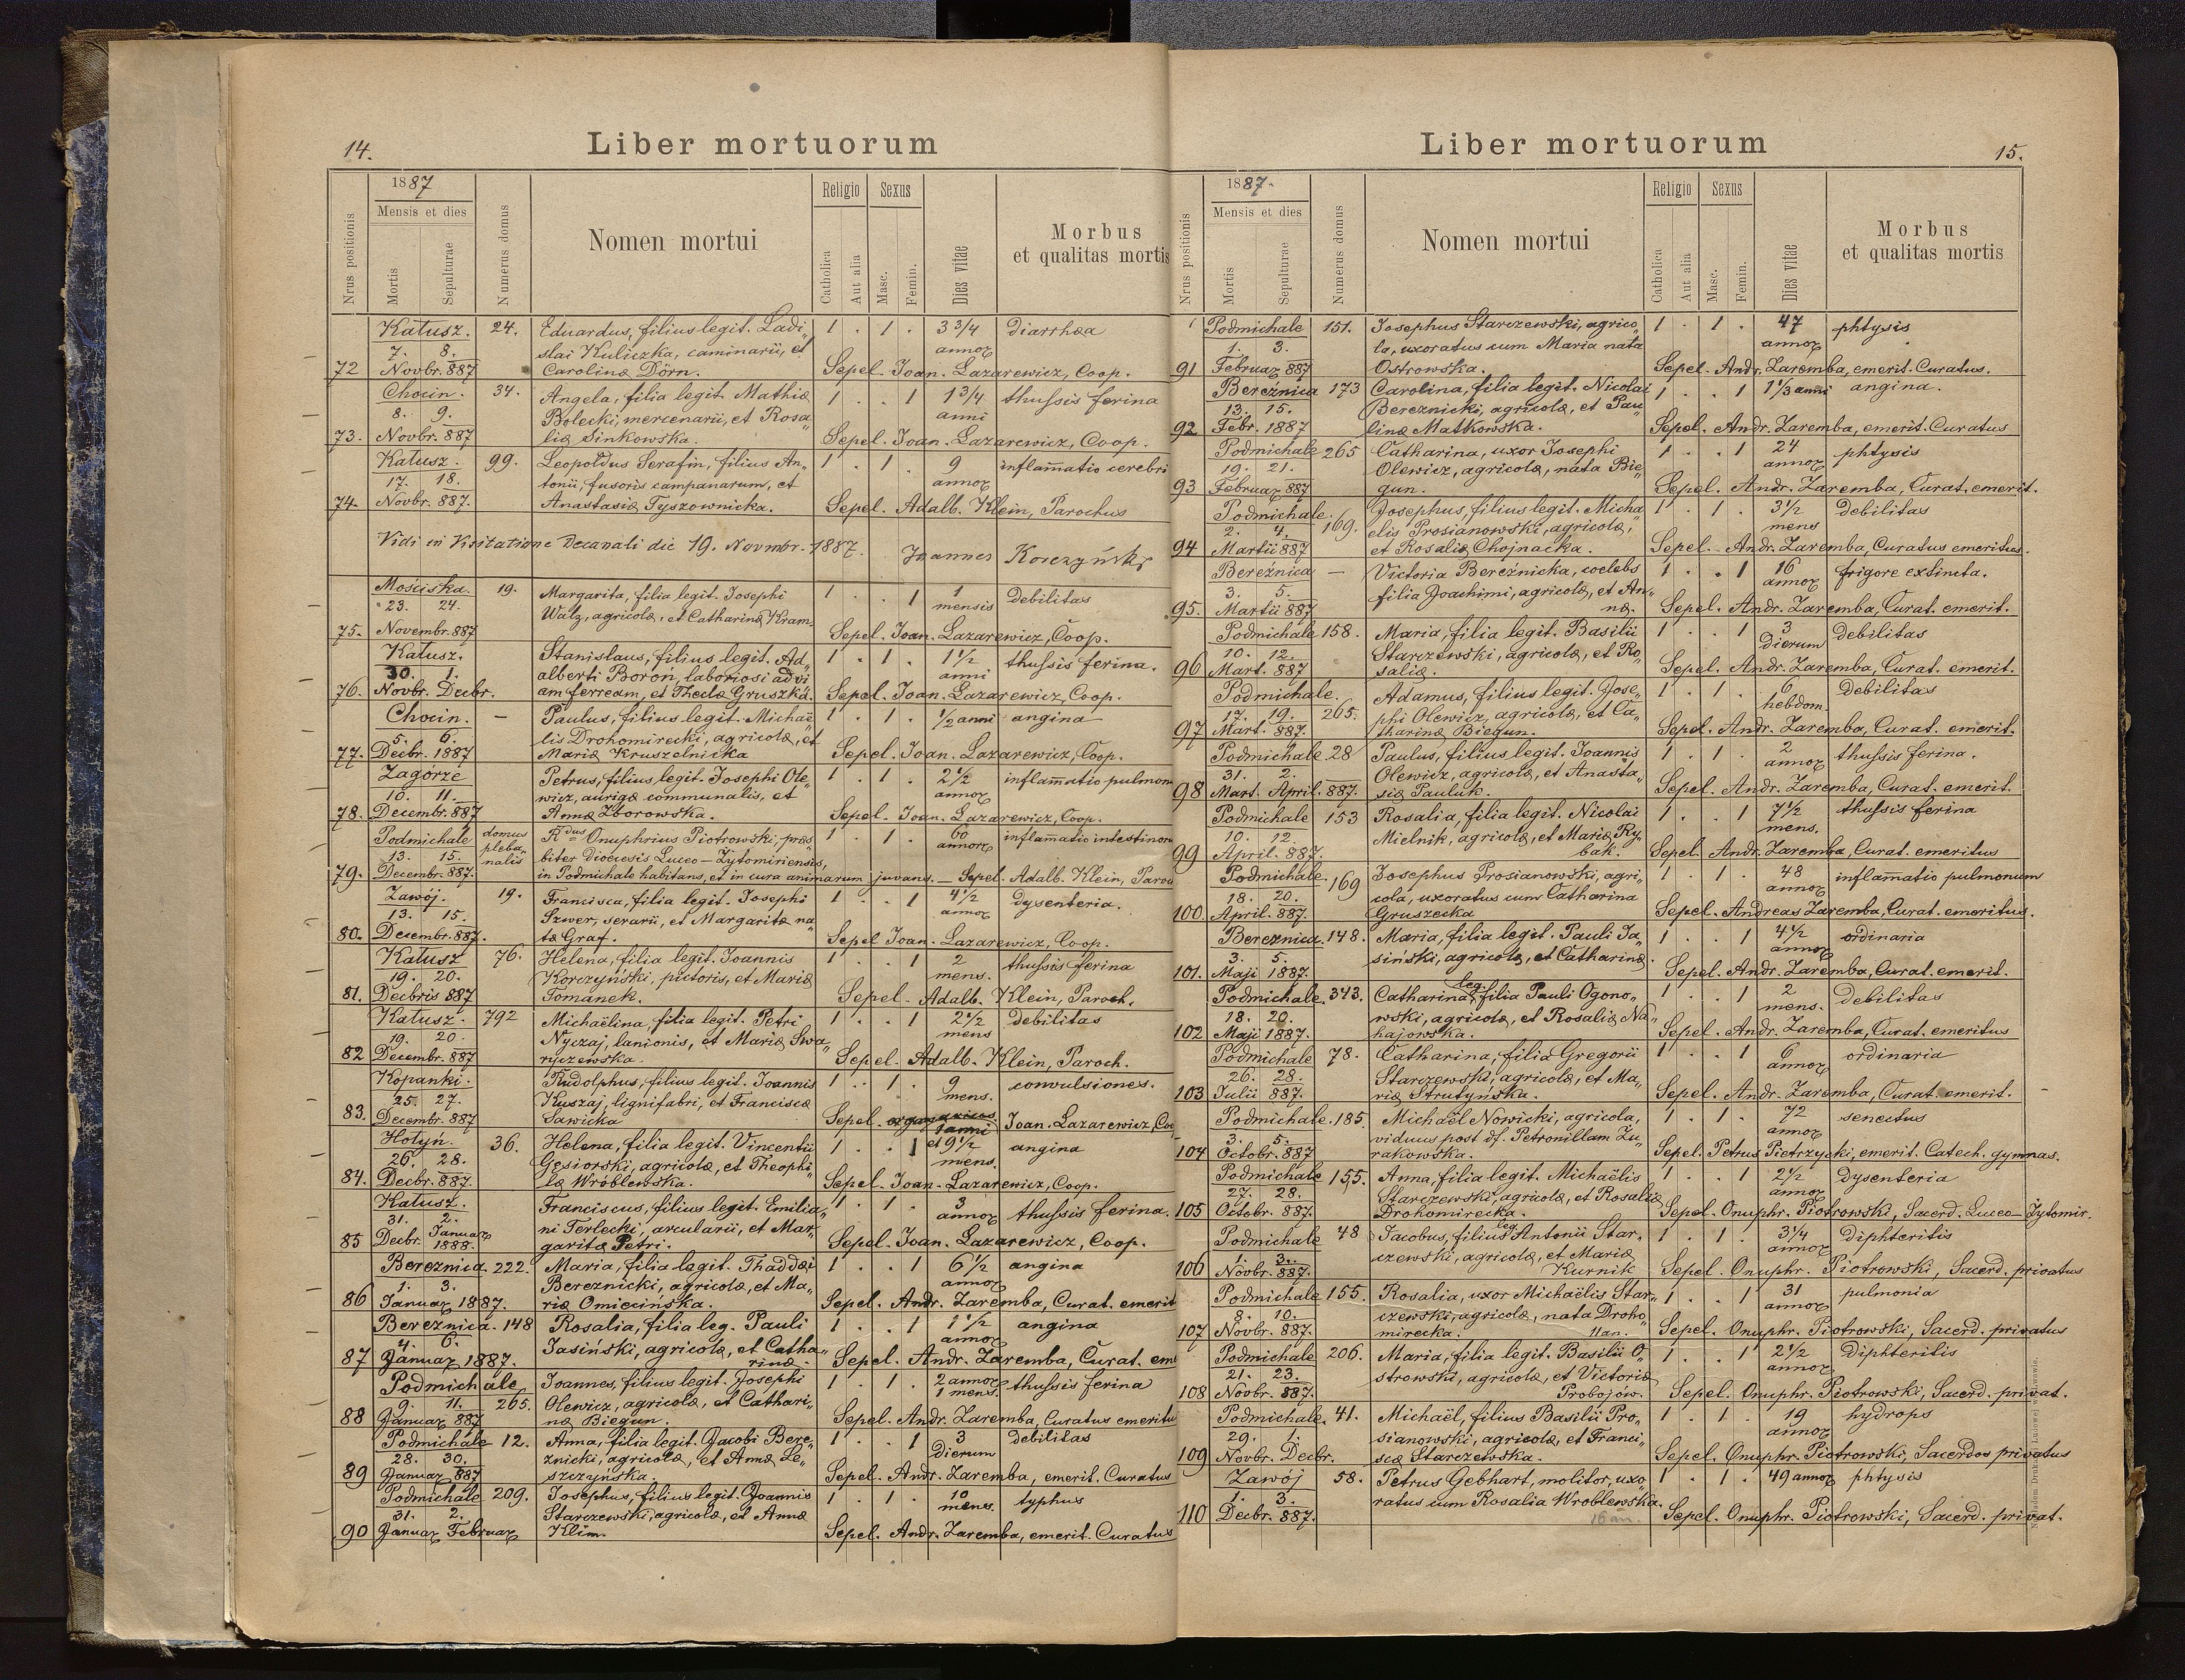 14.
Liber mortuorum
Nrus positionis
1887
Mensis et dies
Mortis
Sepulturae
Numerus domus
Nomen mortui
Religio
Catholica
Aut alia
Sexus
Masc.
Femin.
Dies vitae
Morbus
et qualitas mortis
Kałusz. 24. Eduardus, filius legit. Ladi„ 1 . 1 . 3 3/4 diarrhæa
7. 8. slai Kuliczka, caminarii, et annor
72 Novbr. 887 Carolinæ Dörn. Sepel. Joan. Lazarewicz, Coop.
Chocin. 34. Angela, filia legit. Mathiæ 1 . . 1 1 3/4 thussis ferina
8. 9. Bolecki, mercenarii, et Rosa„ anni
73. Novbr. 887 liæ Sinkowska. Sepel. Joan. Lazarewicz, Coop.
Kałusz. 99. Leopoldus Serafin, filius An„ 1 . 1 . 9 inflam̄atio cerebri
17. 18. tonii, fusoris campanarum, et annor
74. Novbr. 887. Anastasiæ Tyszownicka. Sepel. Adalb. Klein, Parochus
Vidi in Visitatione Decanali die 19. Novmbr. 1887. Joannes Korczyński
Mościska. 19. Margarita, filia legit. Josephi 1 . . 1 1 Debilitas
23. 24. Walz, agricolæ, et Catharinæ Kram. mensis
75. Novembr. 887 Sepel. Joan. Lazarewicz, Coop.
Kałusz. Stanislaus, filius legit. Ad„ 1 . 1 . 1 1/2 thussis ferina.
30. 1. alberti Boroń, laboriosi ad vi anni
76. Novbr. Decbr. am ferream, et Theclæ Gruszka. Sepel. Joan. Lazarewicz, Coop.
Chocin. — Paulus, filius legit. Michaë 1 . 1 . 1/2 anni angina
5. 6. lis Drohomirecki, agricolæ, et
77. Decbr. 1887 Mariæ Kruszelnicka Sepel. Joan. Lazarewicz, Coop.
Zagórze Petrus, filius legit. Josephi Ole 1 . 1 . 2 1/2 inflam̄atio pulmon
10. 11. wicz, aurigæ communalis, et annor
78. Decembr. 887 Annæ Zborowska. Sepel. Joan. Lazarewicz, Coop.
Podmichale domus pleba„ nalis Rdus Onuphrius Piotrowski, præs 1 . 1 . 60 inflam̄atio intestinor
13. 15. biter Dioecesis Luceo-Żytomiriensis, annor
79. Decembr. 887. in Podmichale habitans, et in cura animarum juvans. — Sepel. Adalb. Klein, Paroc
Zawój. 19. Francisca, filia legit. Josephi 1 . . 1 4 1/2 dysenteria.
13. 15. Szwer, serarii, et Margaritæ na„ annor
80. Decembr. 887. tæ Graf. Sepel Joan. Lazarewicz, Coop.
Kałusz 76. Helena, filia legit. Joannis 1 . . 1 2 thussis ferina
19. 20. Korczyński, pictoris, et Mariæ mens.
81. Decbris 887 Tomanek. Sepel. Adalb. Klein, Paroch.
Kałusz. 792 Michaëlina, filia legit. Petri 1 . . 1 2 1/2 debilitas
19. 20. Nyczaj, lanionis, et Mariæ Swa„ mens
82 Decembr. 887 ryczewska. Sepel. Adalb. Klein, Paroch.
Kopanki. Rudolphus, filius legit. Joannis 1 . 1 . 9 convulsiones.
25. 27. Kuszaj, lignifabri, et Franciscæ mens.
83. Decembr. 887 Sawicka Sepel. Joan. Lazarewicz, Coo
Hołyń. 36. Helena, filia legit. Vincentii 1 . . 1 1 anni et 9 1/2 angina
26. 28. Gęsiorski, agricolæ, et Theophi„ mens.
84. Decbr. 887. læ Wróblewska. Sepel. Joan. Lazarewicz, Coop.
Kałusz. Franciscus, filius legit. Emilia„ 1 . 1 . 3 thussis ferina.
31. 2. ni Terlecki, arcularii, et Mar„ annor
85 Decbr. Januar 1888. garitæ Petri. Sepel. Joan. Lazarewicz, Coop.
Bereznica 222. Maria, filia legit. Thaddæi 1 . . 1 6 1/2 angina
1. 3. Bereznicki, agricolæ, et Ma„ annor
86 Januar 1887. riæ Omiecinska. Sepel. Andr. Zaremba, Curat. emerit
Bereznica. 148 Rosalia, filia leg. Pauli 1 . . 1 1 1/2 angina
4. 6. Jasiński, agricolæ, et Catha„ annor
87 Januar 1887. rinæ. Sepel. Andr. Zaremba, Curat. eme
Podmichale Joannes, filius legit. Josephi 1 . 1 . 2 annor 1 mens. thussis ferina
9. 11. 265. Olewicz, agricolæ, et Cathari„
88 Januar 887 næ Biegun. Sepel. Andr. Zaremba, Curatus emeritu
Podmichale 12. Anna, filia legit. Jacobi Bere„ 1 . . 1 3 debilitas
28. 30. znicki, agricolæ, et Annæ Le„ Dierum
89 Januar 887 szczyńska. Sepel. Andr. Zaremba, emerit. Curatus
Podmichale 209. Josephus, filius legit. Joannis 1 . 1 . 10 typhus
31. 2. Starczewski, agricolæ, et Annæ mens.
90 Januar Februar Klim. Sepel. Andr. Zaremba, emerit. Curatus
Liber mortuorum
15.
Nrus positionis
1887.
Mensis et dies
Mortis
Sepulturae
Numerus domus
Nomen mortui
Religio
Catholica
Aut alia
Sexus
Masc.
Femin.
Dies vitae
Morbus
et qualitas mortis
Podmichale 151. Josephus Starczewski, agrico„ 1 . 1 . 47 phtysis
1. 3. la, uxoratus cum Maria nata annor
91 Februar 887 Ostrowska. Sepel. Andr. Zaremba, emerit. Curatus.
Bereźnica 173 Carolina, filia legit. Nicolai 1 . . 1 1 1/3 anni angina.
13. 15. Bereznicki, agricolæ, et Pau„
92 Febr. 1887 linæ Matkowska. Sepel. Andr. Zaremba, emerit. Curatus
Podmichale 265 Catharina, uxor Josephi 1 . . 1 24 phtysis
19. 21. Olewicz, agricolæ, nata Bie„ annor
93 Februar 887 gun. Sepel. Andr. Zaremba, Curat. emerit.
Podmichale. Josephus, filius legit. Micha 1 . 1 . 3 1/2 debilitas
2. 4. 169. elis Prosianowski, agricolæ, mens
94 Martii 887 et Rosaliæ Chojnacka. Sepel. Andr. Zaremba, Curatus emeritus.
Bereźnica — Victoria Bereźnicka, coelebs 1 . . 1 16 frigore extincta.
3. 5. filia Joachimi, agricolæ, et An„ annor
95. Martii 887 næ. Sepel. Andr. Zaremba, Curat. emerit.
Podmichale 158. Maria, filia legit. Basilii 1 . . 1 3 Debilitas
10. 12. Starczewski, agricolæ, et Ro„ Dierum
96 Mart. 887 saliæ. Sepel. Andr. Zaremba, Curat. emerit.
Podmichale. Adamus, filius legit. Jose„ 1 . 1 . 6 Debilitas
17. 19. 265. phi Olewicz, agricolæ, et Ca„ hebdom.
97 Mart. 887. tharinæ Biegun. Sepel. Andr. Zaremba, Curat. emerit.
Podmichale 28 Paulus, filius legit. Joannis 1 . 1 . 2 thussis ferina.
31. 2. Olewicz, agricolæ, et Anasta„ annor
98 Mart. April. 887. siæ Pauluk. Sepel. Andr. Zaremba, Curat. emerit.
Podmichale 153 Rosalia, filia legit. Nicolai 1 . . 1 7 1/2 thussis ferina
10. 12. Mielnik, agricolæ, et Mariæ Ry„ mens.
99 April. 887. bak. Sepel. Andr. Zaremba, Curat. emeritus
Podmichale 169 Josephus Prosianowski, agri„ 1 . 1 . 48 inflam̄atio pulmonum
18. 20. cola, uxoratus cum Catharina annor
100. April. 887. Gruszecka Sepel. Andreas Zaremba, Curat. emeritus.
Bereznica. 148. Maria, filia legit. Pauli Ja„ 1 . . 1 4 1/2 ordinaria
3. 5. siński, agricolæ, et Catharinæ. annor
101. Maji 1887. Sepel. Andr. Zaremba, Curat. emerit.
Podmichale. 343. Catharina, leg. filia Pauli Ogono„ 1 . . 1 2 debilitas
18. 20. wski, agricolæ, et Rosaliæ Na„ mens.
102 Maji 1887. hajowska. Sepel. Andr. Zaremba, Curat. emeritus
Podmichale 78. Catharina, filia Gregorii 1 . . 1 6 ordinaria
26. 28. Starczewski, agricolæ, et Ma„ annor
103 Julii 887. riæ Strutyńska. Sepel. Andr. Zaremba, Curat. emerit.
Podmichale. 185. Michaël Nowicki, agricola, 1 . 1 . 72 senectus
3. 5. viduus post df. Petronillam Żu„ annor
104 Octobr. 887 rakowska. Sepel. Petrus Pietrzycki, emerit. Catech. gymnas.
Podmichale 155. Anna, filia legit. Michaëlis 1 . . 1 2 1/2 dysenteria
27. 28. Starczewski, agricolæ, et Rosaliæ annor
105 Octobr. 887. Drohomirecka. Sepel. Onuphr. Piotrowski, Sacerd. Luceo-Żytomir.
Podmichale 48 Jacobus, filius leg. Antonii Star„ 1 . 1 . 3 1/4 diphteritis
1. 3. czewski, agricolæ, et Mariæ annor
106 Novbr. 887. Kurnik Sepel. Onuphr. Piotrowski, Sacerd. privatus
Podmichale 155. Rosalia, uxor Michaëlis Star„ 1 . . 1 31 pulmonia
8. 10. czewski, agricolæ, nata Droho„ annor
107 Novbr. 887. mirecka. 11 an. Sepel. Onuphr. Piotrowski, Sacerd. privatus
Podmichale 206. Maria, filia legit. Basilii O„ 1 . . 1 2 1/2 Diphteritis
21. 23. strowski, agricolæ, et Victoriæ annor
108 Novbr. 887. Probojów. Sepel. Onuphr. Piotrowski, Sacerd. privat.
Podmichale. 41. Michaël, filius Basilii Pro„ 1 . 1 . 19 hydrops
29. 1. sianowski, agricolæ, et Franci„ annor
109 Novbr. Decbr. scæ Starczewska. Sepel. Onuphr. Piotrowski, Sacerdos privatus
Zawój 58. Petrus Gebhart, molitor, uxo 1 . 1 . 49 annor phtysis
1. 3. ratus cum Rosalia Wroblewska.
110 Decbr. 887. 16 an. Sepel. Onuphr. Piotrowski, Sacerd. privat.
Nakładem Drukarni Ludowej we Lwowie.